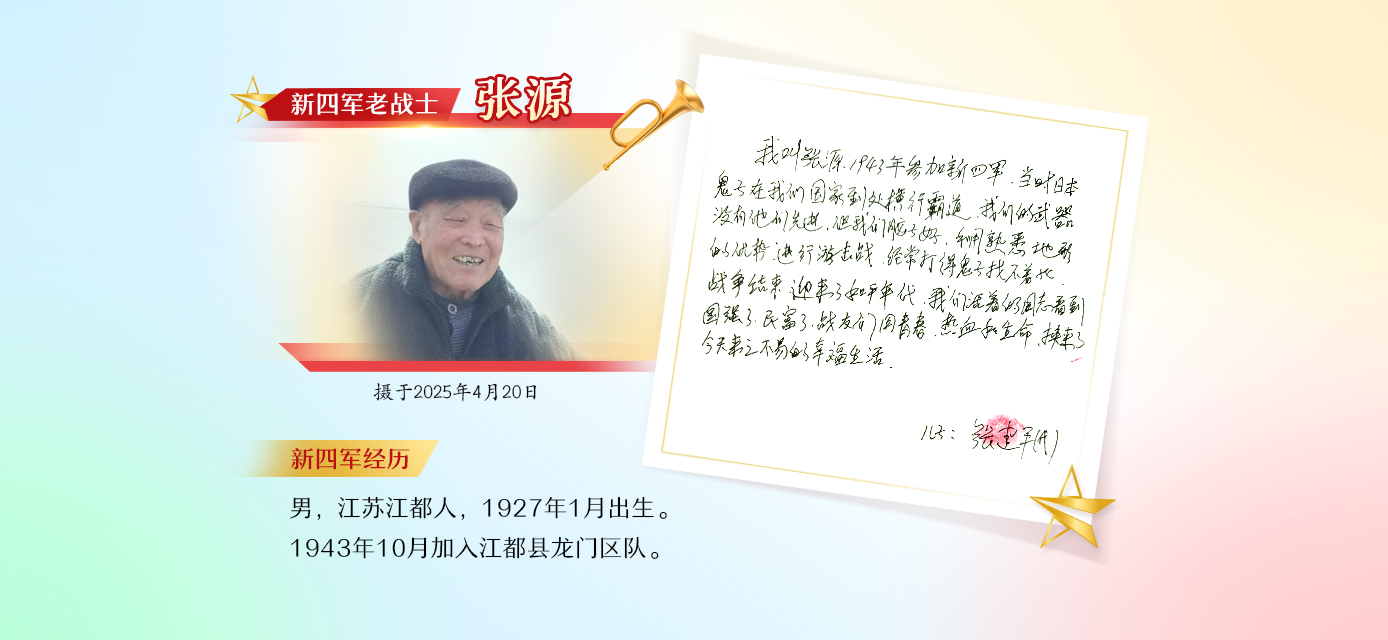 新四军老战士 张源
摄于2025年4月20日
新四军经历
男，江苏江都人，1927年1月出生。
1943年10月加入江都县龙门区队。
我叫张源，1943年参加新四军，当时日本
鬼子在我们国家到处横行霸道，我们的武器
没有他们先进，但我们脑子好，利用熟悉地形
的优势，进行游击战，经常打得鬼子找不着北，
战争结束，迎来了和平年代，我们活着的同志看到
国强了，民富了，战友们用青春、热血和生命，换来了
今天来之不易的幸福生活。
儿子：张建军(代)